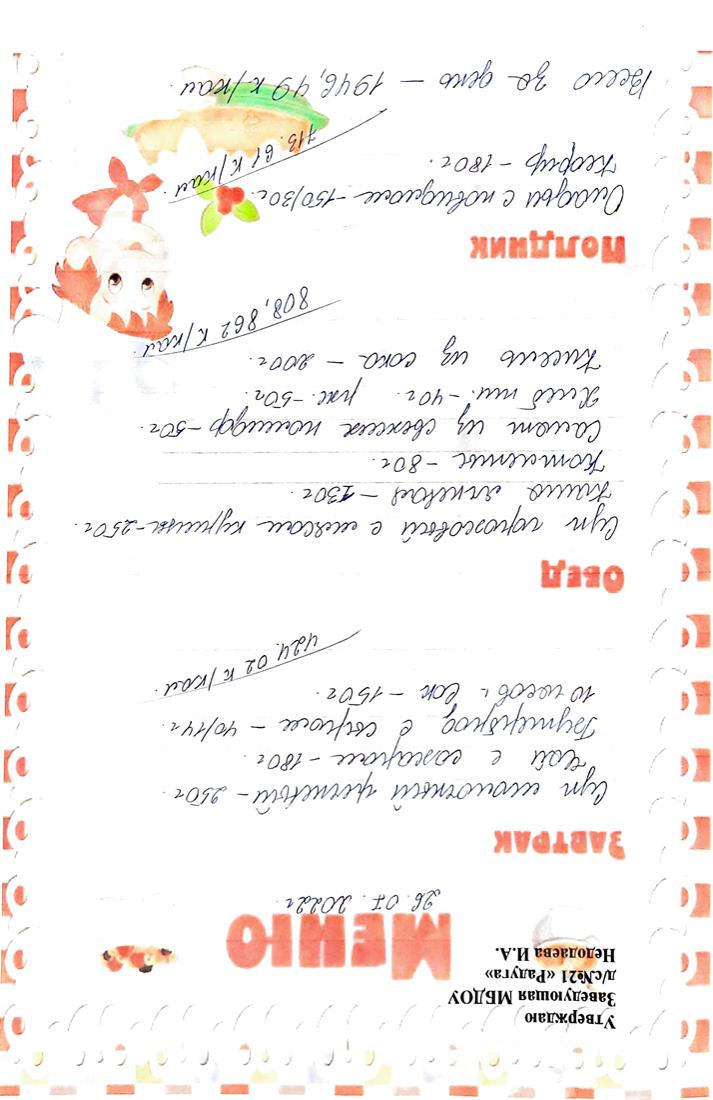 Утверждаю
Заведующая МБДОУ
д/с№21 «Радуга»
Недодаева И.А.
Меню
26.07.2022г.
Завтрак
Суп молочный гречневый – 250г.
Чай с сахаром – 180г.
Бутерброд с сыром – 40/14г.
10 часов. Сок – 150г.
424.02 к/кал.
Обед
Суп гороховый с мясом курицы – 250г.
Каша ячневая – 130г.
Котлеты – 80г.
Салат из свежих помидор – 50г.
Хлеб пш. – 40г. рж. – 50г.
Кисель из сока – 200г.
808,862 к/кал.
Полдник
Оладьи с повидлом – 150/30г.
Кефир – 180г.
713.61 к/кал.
Всего за день – 1946,49 к/кал.